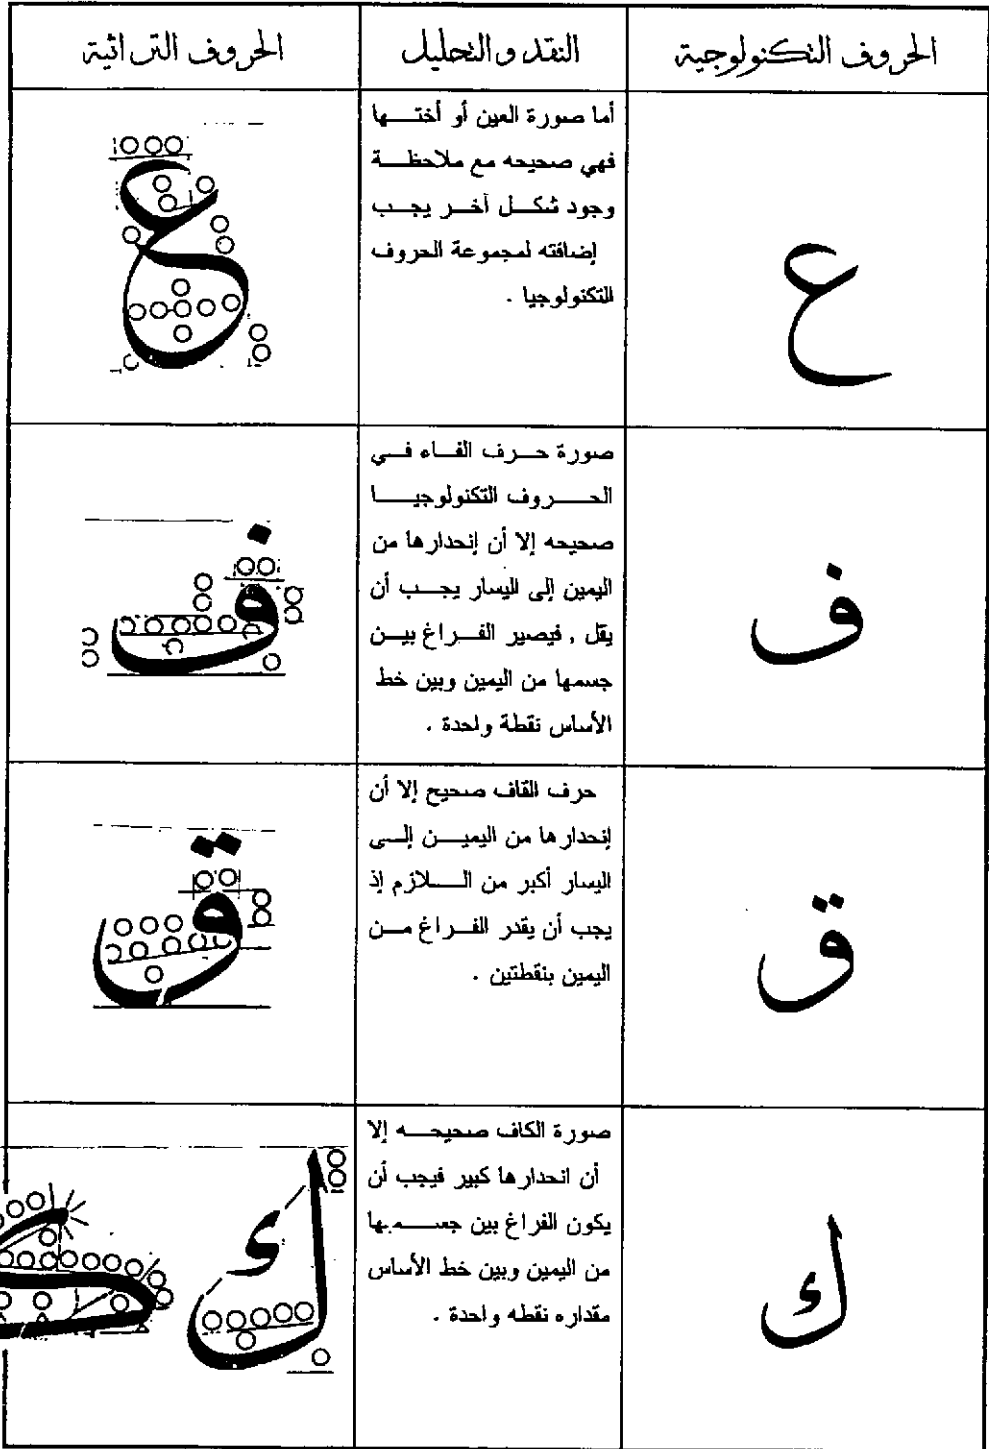 الحروف التكنولوجية
النقد والتحليل
الحروف التراثية
ع
أما صورة العين أو أختها
فهي صحيحه مع ملاحظة
وجود شكل آخر يجب
إضافته لمجموعة الحروف
التكنولوجيا .
ع
ف
صورة حرف الفاء في
الحروف التكنولوجيا
صحيحه إلا أن إنحدارها من
اليمين إلى اليسار يجب أن
يقل , فيصير الفراغ بين
جسمها من اليمين وبين خط
الأساس نقطة واحدة .
ف
ق
حرف القاف صحيح إلا أن
إنحدارها من اليمين إلى
اليسار أكبر من اللازم إذ
يجب أن يقدر الفراغ من
اليمين بنقطتين .
ق
ك
صورة الكاف صحيحه إلا
أن انحدارها كبير فيجب أن
يكون الفراغ بين جسمها
من اليمين وبين خط الأساس
مقداره نقطه واحدة .
ك ک